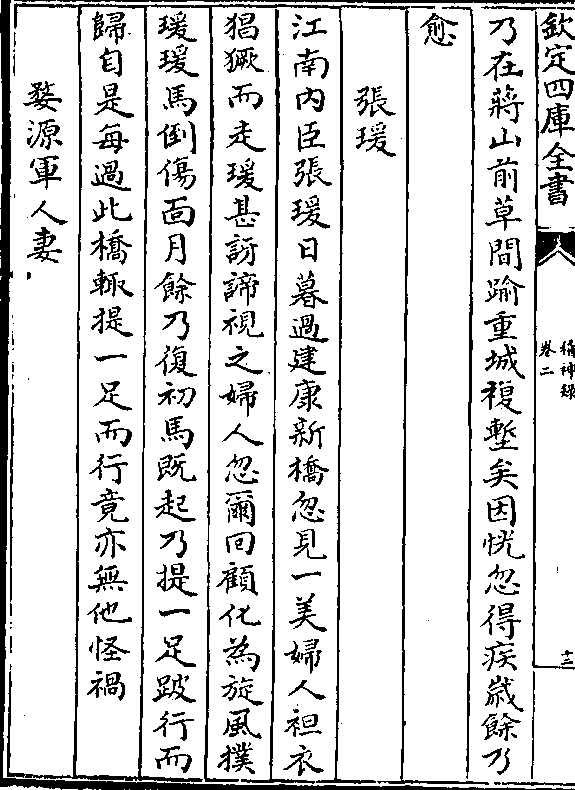 欽定四庫全書
稽神録
卷二
十三
乃在蔣山前草間踰重城複塹矣因恍忽得疾歲餘乃
愈
張瑗
江南内臣張瑗日暮過建康新橋忽見一美婦人袒衣
猖獗而走瑗甚訝諦視之婦人忽爾回顧化為旋風撲
瑗瑗馬倒傷面月餘乃復初馬既起乃提一足跛行而
歸自是每過此橋輙提一足而行竟亦無他怪禍
婺源軍人妻